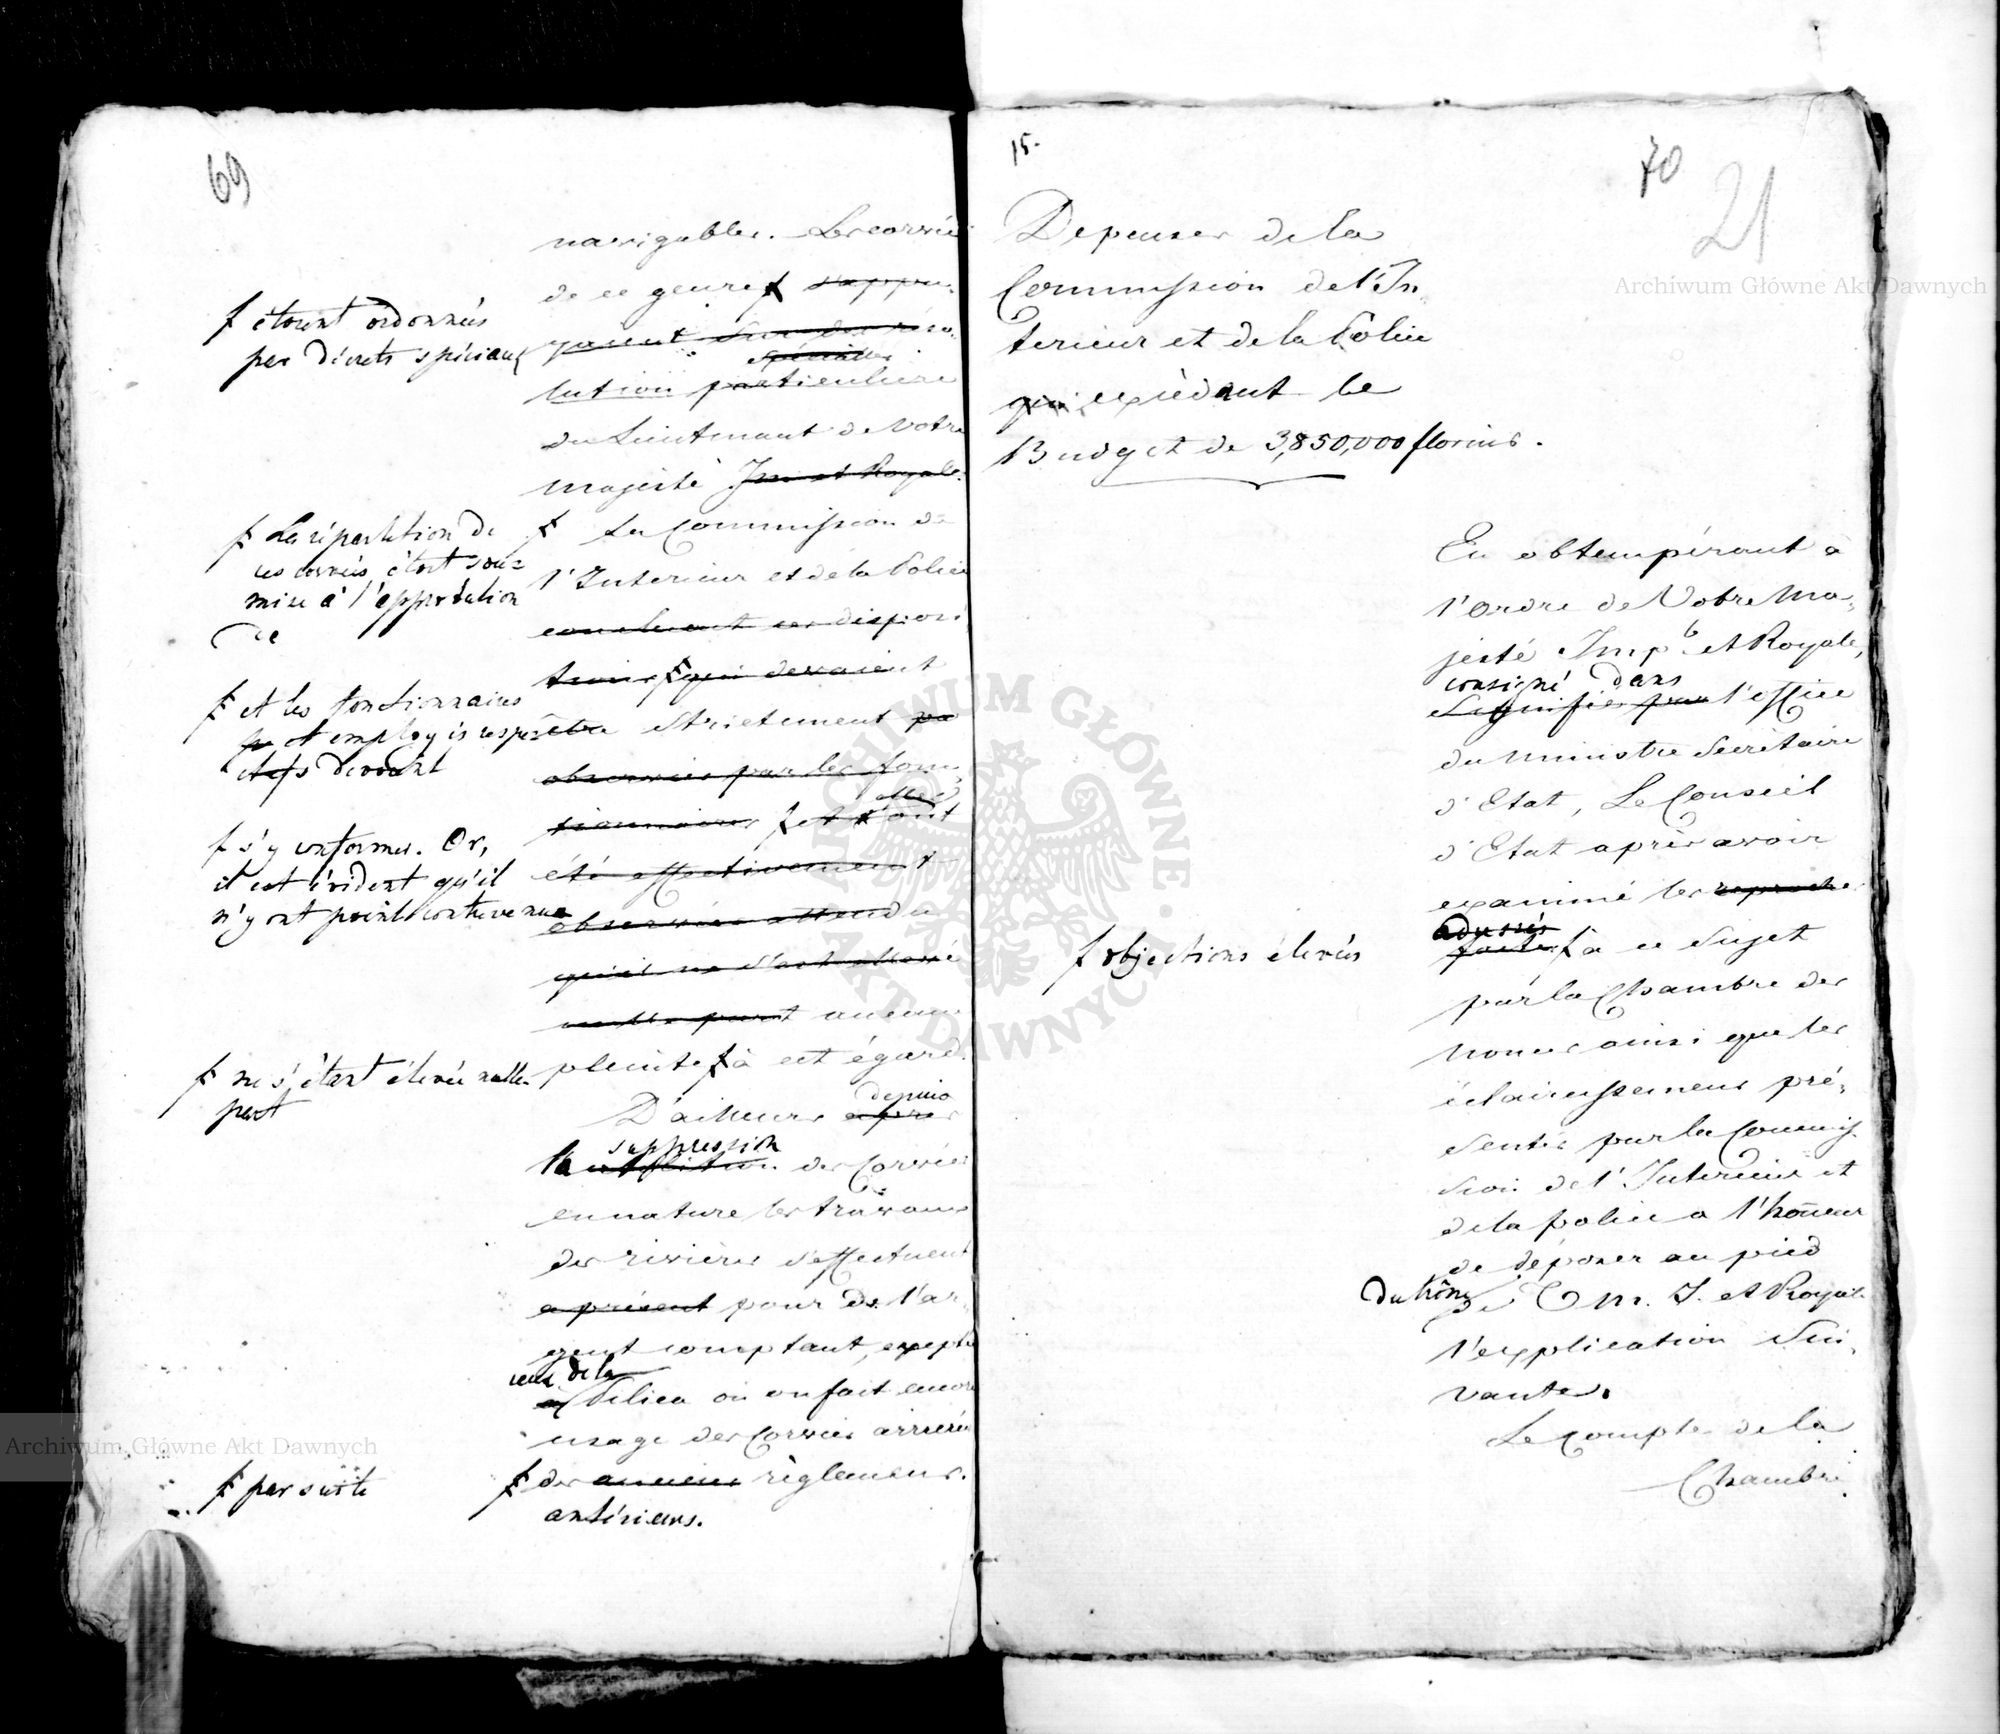 69
navigables. Les corvées
de ce genre ƒ s'appu-
yaient sur des réso-
spéciales
lution particulière
du Lieutenant de Votre
majesté Im. et Royale.
ƒ étoient ordonnés
par décrets spéciaux
ƒ La Commission de
l'Interieur et de la Police
ƒ La répartition de
ces corvées étoit sou=
mise à l'approbation
de
concluant ces disposi
tions ƒ qui devaient
être strictement
observées par les fonc-
tionnaires ƒ et
elles
ont
ƒ et les fonctionnaires
et employés respe
ctifs devoient
été effectivement
observées attendu
qu'il ne s'est élevé
nulle part aucune
ƒ s'y conformer. Or,
il est évident qu'il
n'y ont point contrevenu
plainte ƒ à cet égard.
ƒ ne s'étant élevée nulle
part
depuis
D'ailleurs après
suppression
la abolition des Corvées
en nature les travaux
des rivières s'effectuent
a présent pour de l'ar-
gent comptant, excepté
ceux de la
Pilica où on fait encore
usage des Corvées arriérées
ƒ des anciens règlemens.
antérieurs.
ƒ par suite
15.
70
21
Depenses de la
Commission de l'In-
terieur et de la Police
qui excèdent le
Budget de 3,850,000 florins.
En obtempérant à
l'Ordre de Votre Ma-
jesté Imp. et Royale,
consigné dans
Signifié par l'office
du Ministre Secrétaire
d'Etat, Le Conseil
d'Etat après avoir
examiné les reproches
adressés
faites ƒ à ce Sujet
ƒ objections élevées
par la Chambre des
Nonces ainsi que les
éclaircissemens pré-
sentés par la Commis
sion de l'Interieur et
de la police a l'honneur
de déposer au pied
du trône
de V. M. I. et Royale
l'explication sui-
vante.
Le compte de la
Chambre
Archiwum Główne Akt Dawnych
Archiwum Główne Akt Dawnych
ARCHIWUM GŁÓWNE AKT DAWNYCH